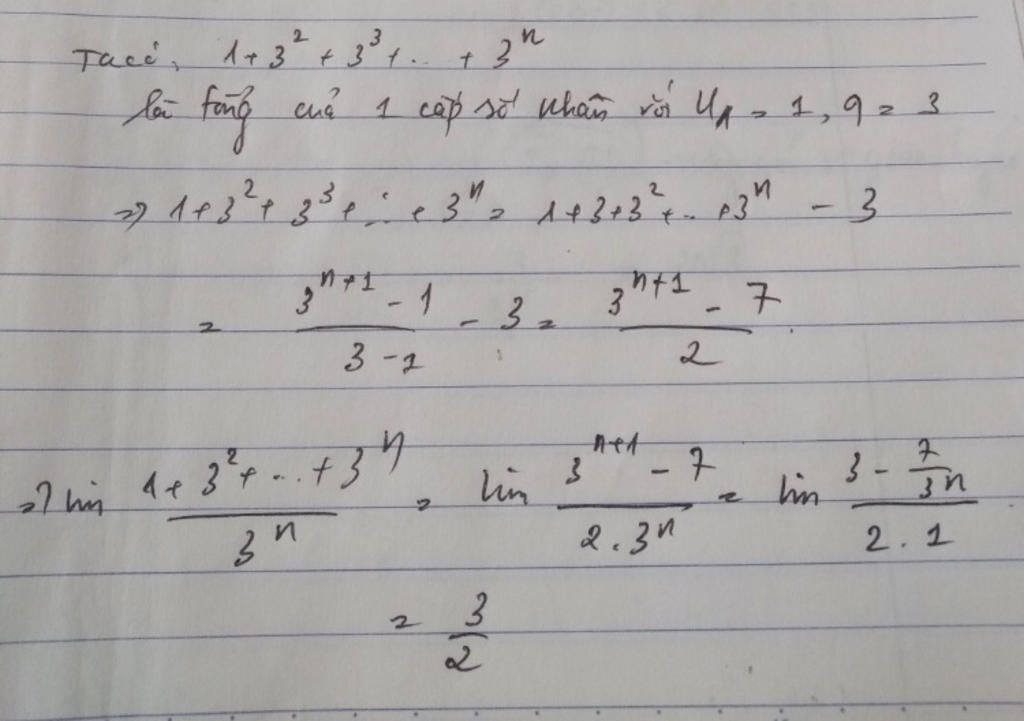 Ta có, 1 + 3² + 3³ + .. + 3ⁿ
là tổng của 1 cấp số nhân với U₁ = 1, q = 3
=> 1 + 3² + 3³ + .. + 3ⁿ = 1 + 3 + 3² + .. + 3ⁿ - 3
= (3ⁿ⁺¹ - 1)/(3 - 1) - 3 = (3ⁿ⁺¹ - 7)/2
=> lim (1 + 3² + ... + 3ⁿ)/(3ⁿ) = lim (3ⁿ⁺¹ - 7)/(2 . 3ⁿ) = lim (3 - 7/3ⁿ)/(2 . 1)
= 3/2